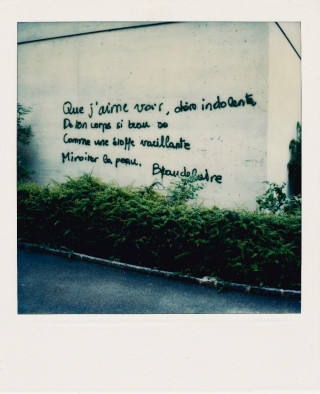 Que j'aime voir, chère indolente,
De ton corps si beau
Comme une étoffe vacillante
Miroiter la peau.
Baudelaire